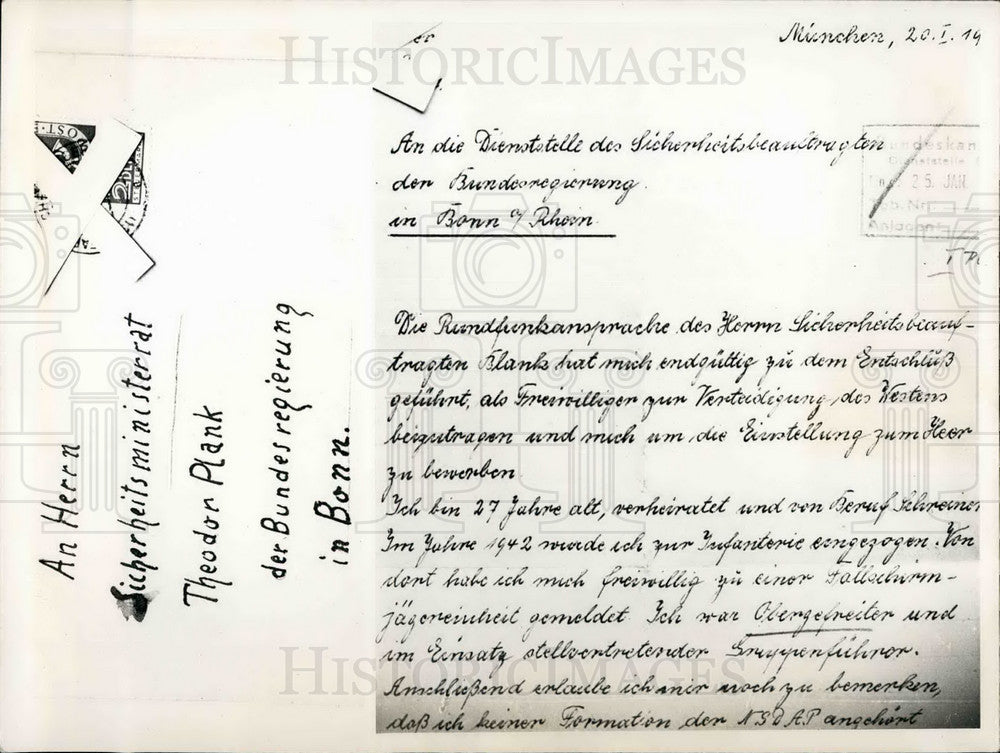 An Herrn
Sicherheitsministerrat
Theodor Plank
der Bundesregierung
in Bonn.
München, 20.I.19
An die Dienststelle des Sicherheitsbeauftragten
der Bundesregierung
in Bonn a/ Rhein.
Bundeskan
Dienststelle
25. JAN.
Anlagen
Die Rundfunkansprache des Herrn Sicherheitsbeauf-
tragten Blank hat mich endgültig zu dem Entschluß
geführt, als Freiwilliger zur Verteidigung des Westens
beizutragen und mich um die Einstellung zum Heer
zu bewerben
Ich bin 27 Jahre alt, verheiratet und von Beruf Schreiner
Im Jahre 1942 wurde ich zur Infanterie eingezogen. Von
dort habe ich mich freiwillig zu einer Fallschirm-
jägereinheit gemeldet. Ich war Obergefreiter und
im Einsatz stellvertretender Gruppenführer.
Anschließend erlaube ich mir noch zu bemerken,
daß ich keiner Formation der NSDAP angehört
HISTORIC IMAGES
HISTORIC IMAGES